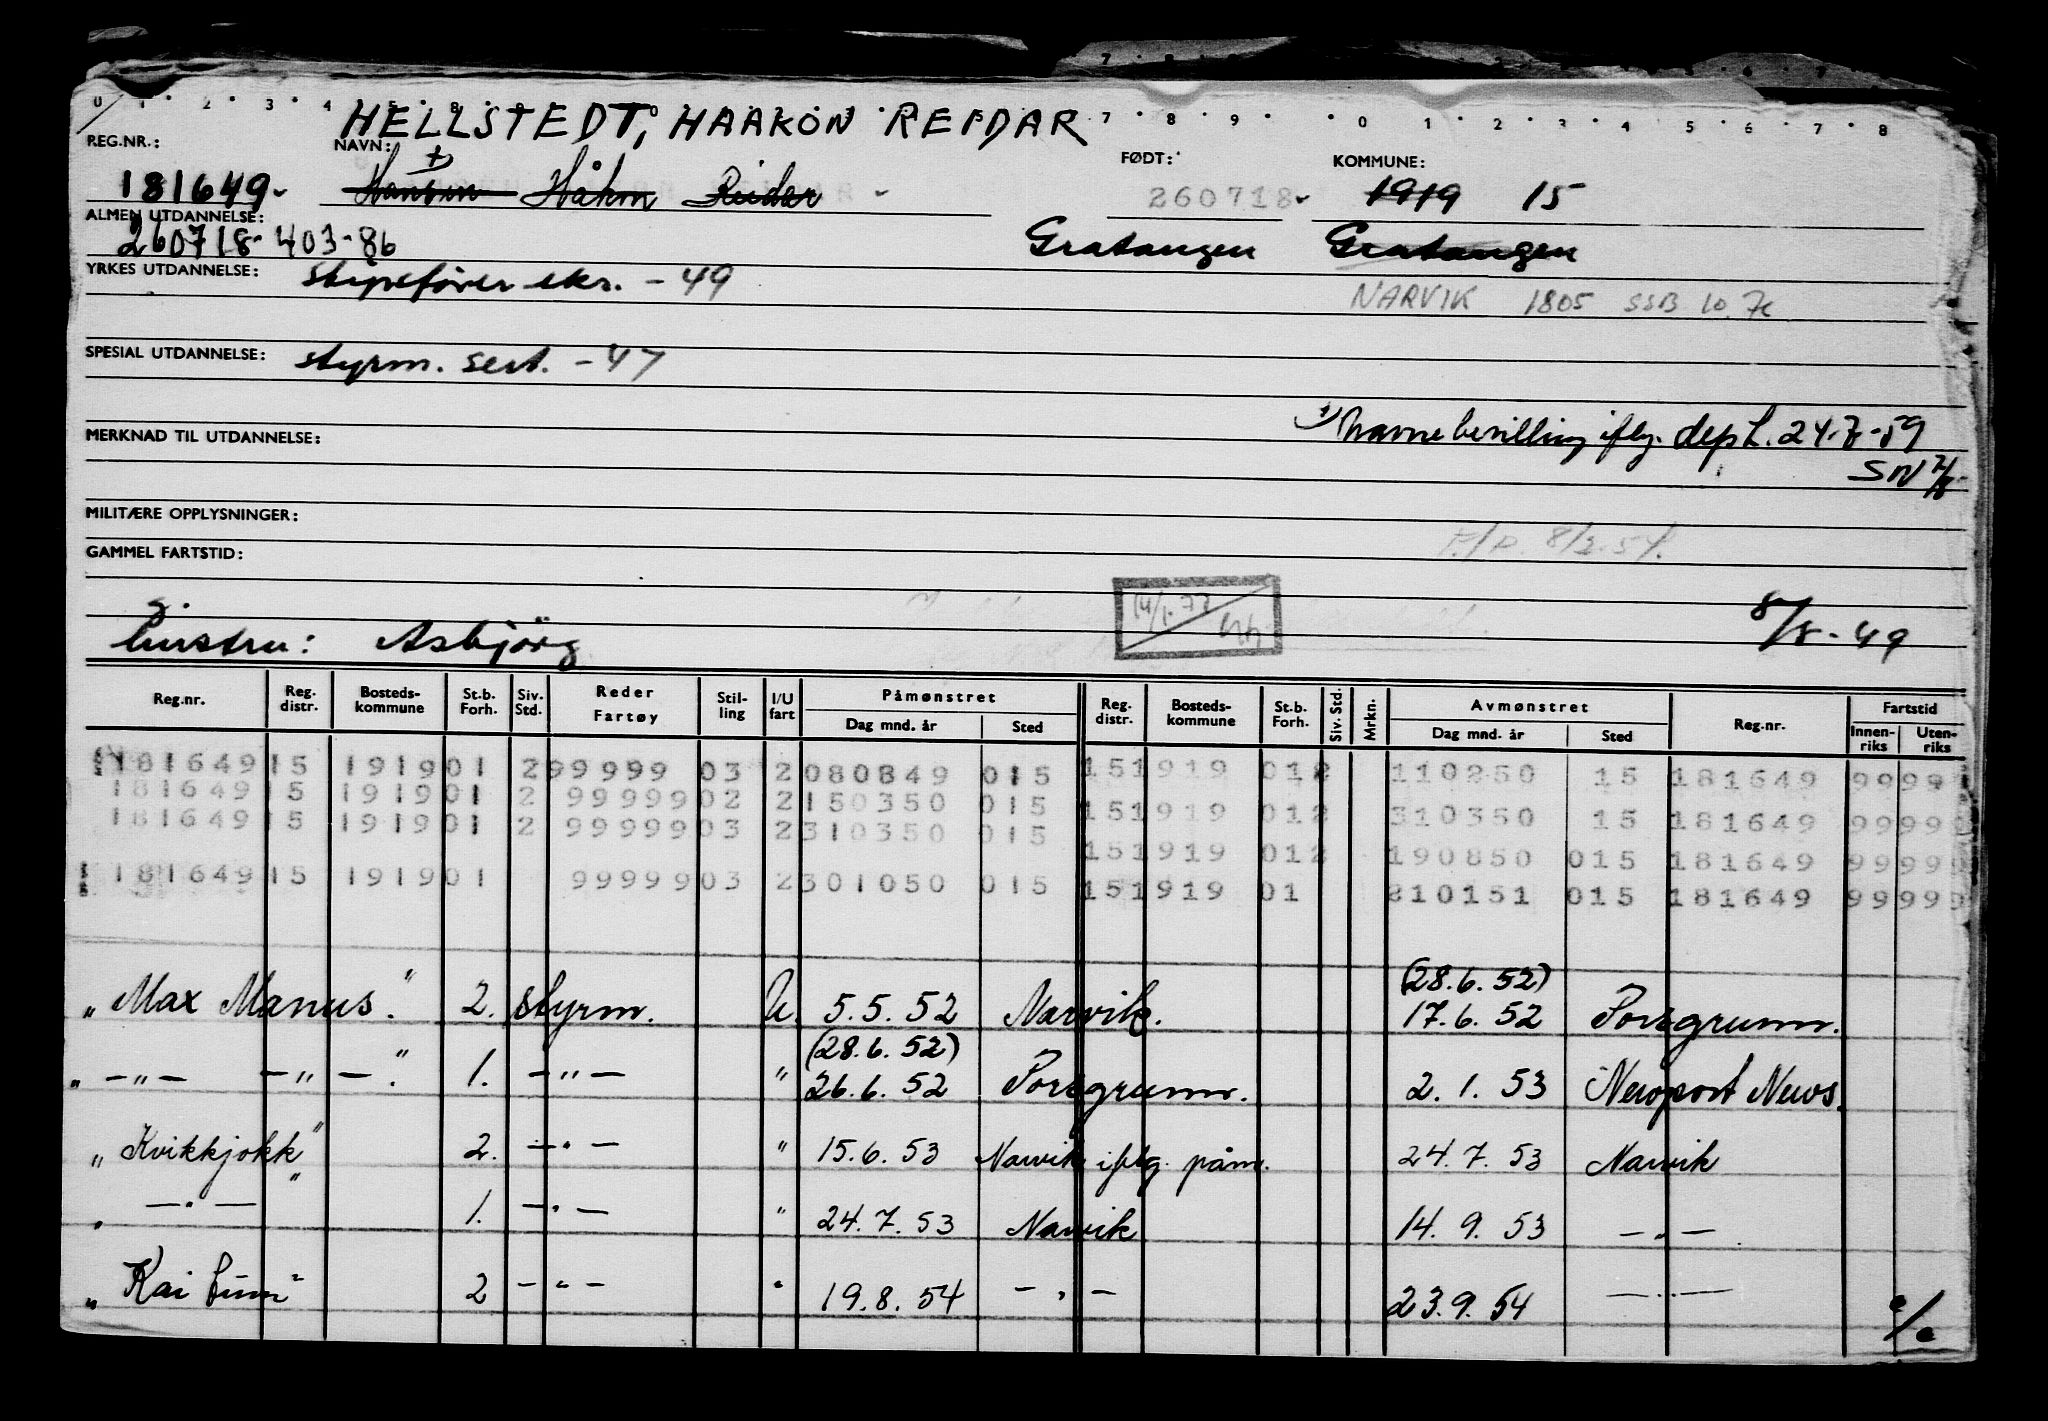 HELLSTEDT, HAAKON REIDAR
REG.NR.: NAVN: FØDT: KOMMUNE:
181649 Hansen Håkon Reidar 260718 1919 15
ALMEN UTDANNELSE:
260718-403-86 Gratangen Gratangen
YRKES UTDANNELSE: styrefører eks. - 49
NARVIK 1805 SSB 10.70
SPESIAL UTDANNELSE: styrm. sert. - 47
Navnebevilling iflg. dept. 24-7-59
MERKNAD TIL UTDANNELSE:
SN
MILITÆRE OPPLYSNINGER:
GAMMEL FARTSTID:
8/8-49
hustru: Asbjörg
Reg.nr. Reg. distr. Bosteds-kommune St.b. Forh. Siv. Std. Reder Fartøy Stil-ling I/U fart Påmønstret Dag mnd. år Sted Reg. distr. Bosteds-kommune St.b. Forh. Siv. Std. Mrkn. Avmønstret Dag mnd. år Sted Reg.nr. Fartstid Innen-riks Uten-riks
181649 15 1919 01 2 99999 03 2 080849 015 15 1919 01 2 110250 15 181649 99 999
181649 15 1919 01 2 99999 02 2 150350 015 15 1919 01 2 310350 15 181649 99 999
181649 15 1919 01 2 99999 03 2 310350 015 15 1919 01 2 190850 015 181649 99 999
181649 15 1919 01 99999 03 2 301050 015 15 1919 01 210151 015 181649 99 999
(28.6.52)
„Max Manus." 2. styrm. U. 5.5.52 Narvik. 17.6.52 Porsgrunn.
(28.6.52)
„ -"- -"- ." 1. -"- " 26.6.52 Porsgrunn. 2.1.53 Newport News.
„Kvikkjokk" 2. -"- " 15.6.53 Narvik iflg. påm. 24.7.53 Narvik
„ -"- " 1. -"- " 24.7.53 Narvik 14.9.53 -"-
„Kai Lum" 2 -"- " 19.8.54 -"- 23.9.54 -"-